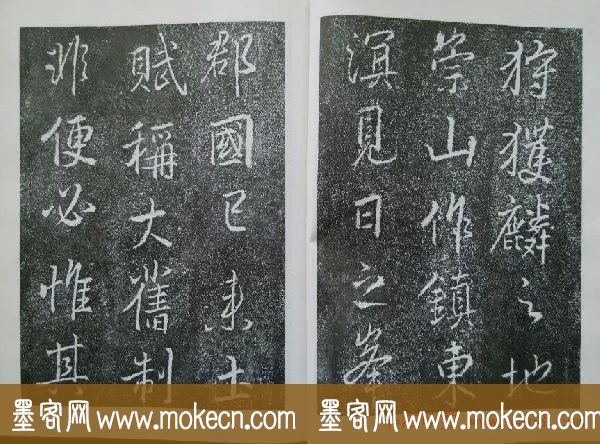 狩獲麟之地
崇山作鎮東
溟見日之峯
郡國已来土
賦稱大舊制
非便必惟其
墨客网www.mokecn.com
墨客网www.mokecn.com